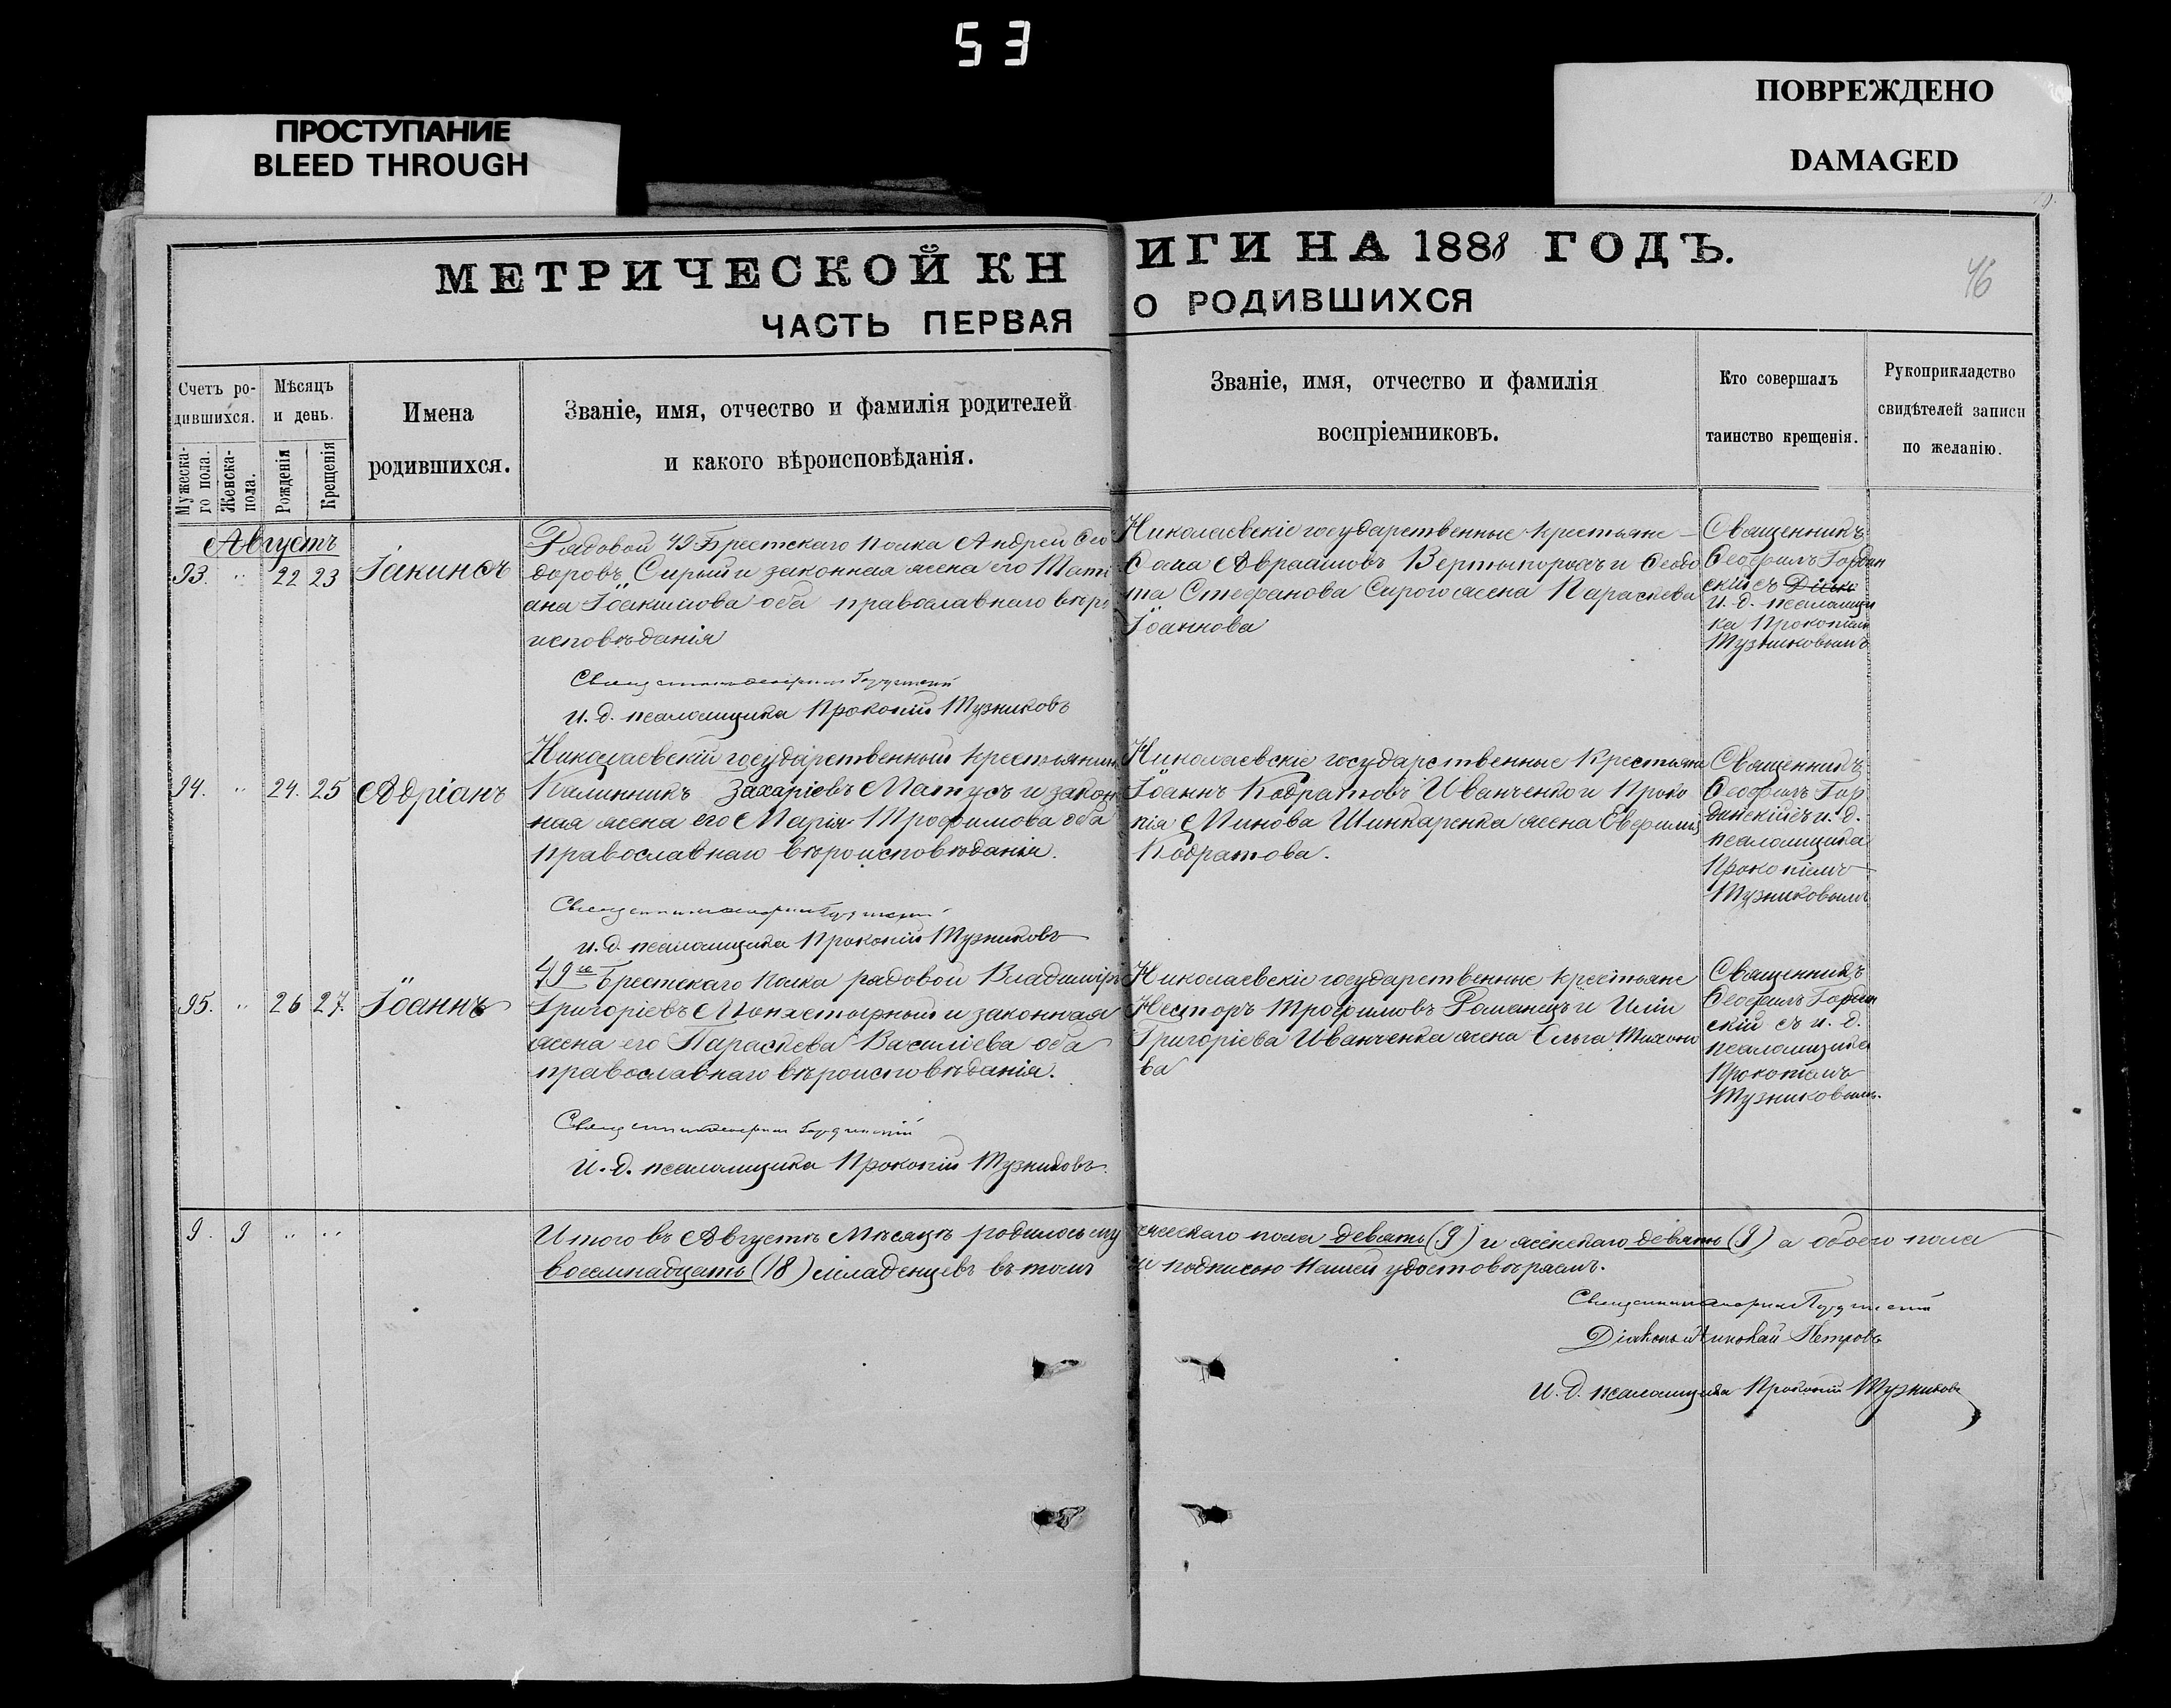 53
ПРОСТУПАНИЕ
BLEED THROUGH
ПОВРЕЖДЕНО
DAMAGED
МЕТРИЧЕСКОЙ КНИГИ НА 1888 ГОДЪ.
46
ЧАСТЬ ПЕРВАЯ О РОДИВШИХСЯ
Счетъ родившихся.
Мужеска-го пола.
Женска- пола.
Мѣсяцъ и день.
Рожденія
Крещенія
Имена
родившихся.
Званіе, имя, отчество и фамилія родителей
и какого вѣроисповѣданія.
Званіе, имя, отчество и фамилія
воспріемниковъ.
Кто совершалъ
таинство крещенія.
Рукоприкладство
свидѣтелей записи
по желанію.
Августъ
93. " 22 23 Іакинѳъ
Рядовой 49 Брестскаго полка Андрей Ѳео
доровъ Сирый и законная жена его Тати
ана Іоакимова оба православнаго вѣро
исповѣданія
И. д. псаломщика Прокопій Тузниковъ
Николаевскіе государственные крестьяне
Савва Авраамовъ Вертыпорохъ и Ѳеодо
та Стефанова Сирого жена Параскева
Іоаннова
Священникъ
Ѳеофилъ Гордин
скій съ Діако
и. д. псаломщи
ка Прокопіемъ
Тузниковымъ
94. " 24. 25 Адріанъ
Николаевскій государственный крестьянинъ
Калинникъ Захаріевъ Матусъ и закон
ная жена его Марія Трофимова оба
православнаго вѣроисповѣданія.
и. д. псаломщика Прокопій Тузниковъ
Николаевскіе государственные крестьяне
Іоаннъ Кодратовъ Иванченко и Проко
пія Минова Шинкаренка жена Евфимія
Кодратова.
Священникъ
Ѳеофилъ Гор
динскій съ и. д.
псаломщика
Прокопіемъ
Тузниковымъ
95. " 26 27. Іоаннъ
49го Брестскаго полка рядовой Владиміръ
Григоріевъ и законная
жена его Параскева Василіева оба
православнаго вѣроисповѣданія.
И. д. псаломщика Прокопій Тузниковъ.
Николаевскіе государственные крестьяне
Несторъ Трофимовъ Романецъ и Иліи
Григоріева Иванченка жена Ольга Тихоно
ва
Священникъ
Ѳеофилъ Гордин
скій съ и. д.
псаломщика
Прокопіемъ
Тузниковымъ.
9. 9 " " Итого въ Августѣ мѣсяцѣ родилось мужескаго пола девять (9) и женскаго девять (9) а обоего пола
восемнадцать (18) младенцевъ въ томъ и подписью нашей удостовѣряемъ.
Діаконъ Николай Петровъ
И. д. псаломщика Прокопій Тузниковъ